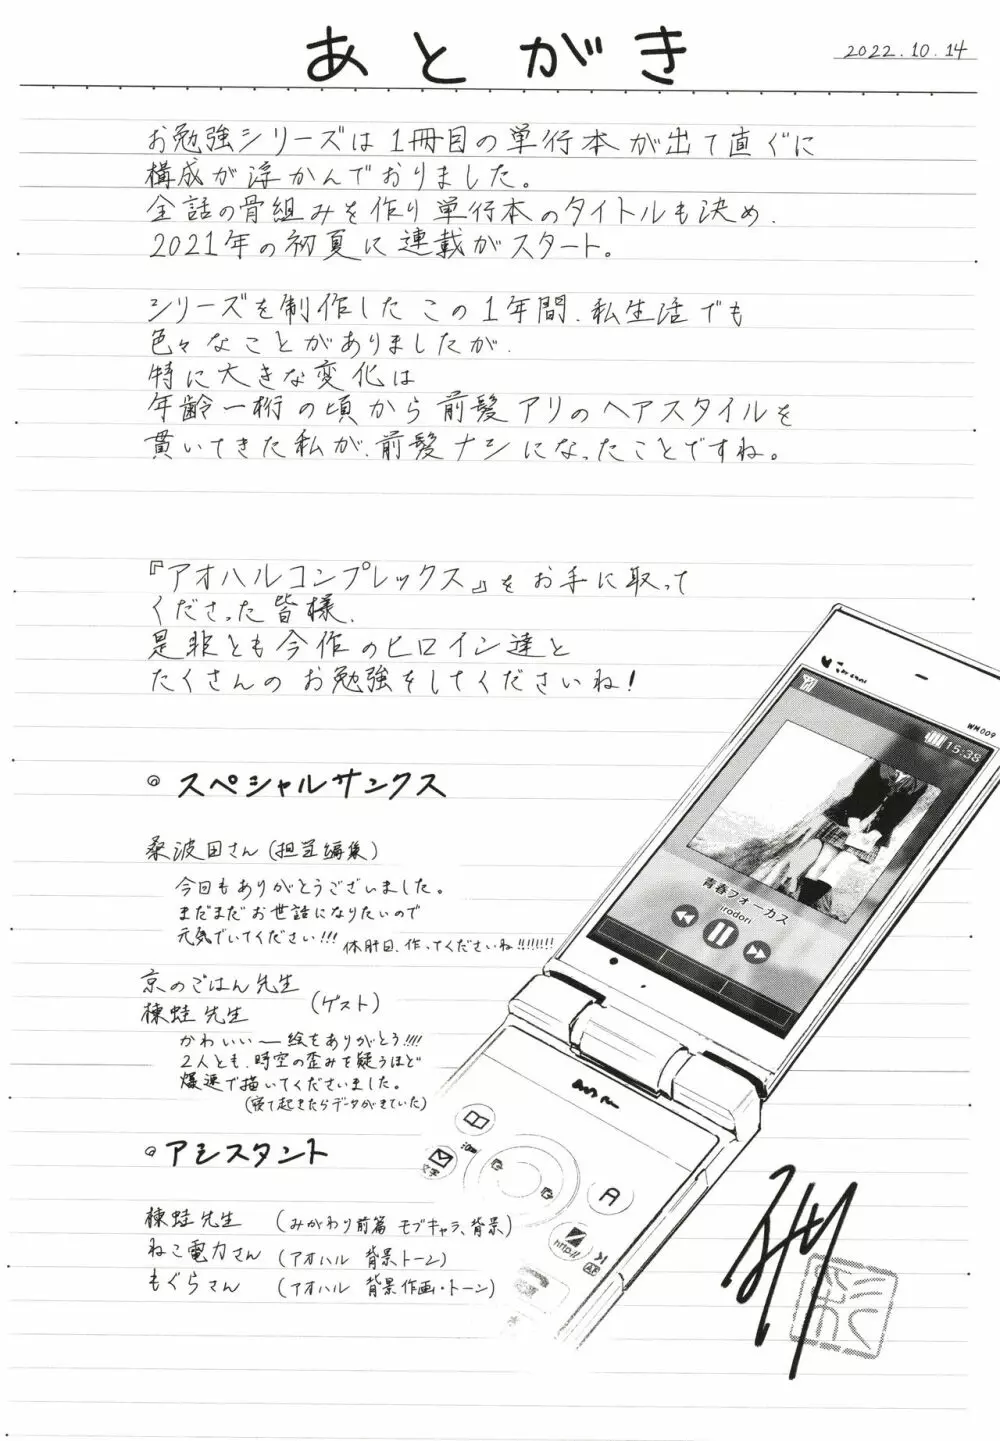 あとがき
2022.10.14
お勉強シリーズは1冊目の単行本が出て直ぐに
構成が浮かんでおりました。
全話の骨組みを作り単行本のタイトルも決め、
2021年の初夏に連載がスタート。
シリーズを制作したこの1年間、私生活でも
色々なことがありましたが、
特に大きな変化は
年齢一桁の頃から前髪アリのヘアスタイルを
貫いてきた私が、前髪ナシになったことですね。
『アオハルコンプレックス』をお手に取って
くださった皆様、
是非とも今作のヒロイン達と
たくさんのお勉強をしてくださいね!
◎スペシャルサンクス
桑波田さん(担当編集)
今回もありがとうございました。
まだまだお世話になりたいので
元気でいてください!!! 休肝日、作ってくださいね!!!!!!!!
京のごはん先生
棟蛙先生
(ゲスト)
かわいい〜絵をありがとう!!!!
2人とも、時空の歪みを疑うほど
爆速で描いてくださいました。
(寝て起きたらデータがきていた)
◎アシスタント
棟蛙先生 (みがわり前篇 モブキャラ、背景)
ねこ電力さん (アオハル 背景トーン)
もぐらさん (アオハル 背景作画・トーン)
WN009
15:38
青春フォーカス
irodori
文字
A
http://